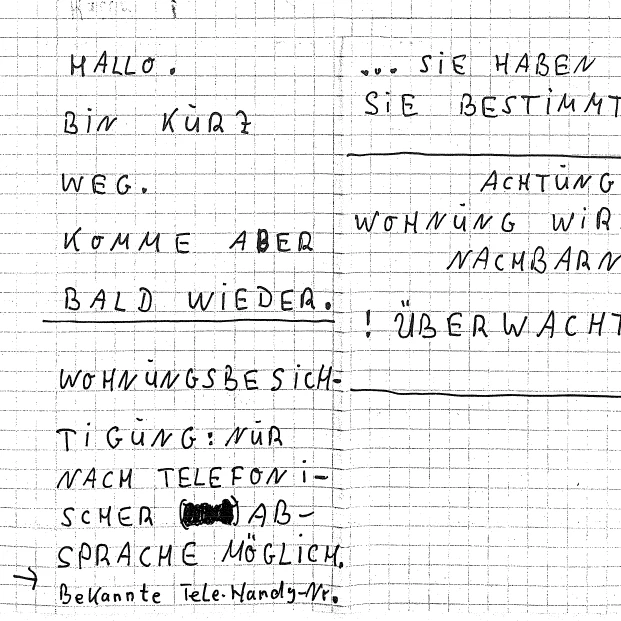 HALLO.
BiN KURZ
WEG.
KOMME ABER
BALD WiEDER.
WOHNUNGSBESiCH-
TiGUNG: NUR
NACH TELEFONi-
SCHER ( ) AB-
SPRACHE MÖGLiCH.
→ Bekannte Tele.Handy-Nr.
... SiE HABEN
SiE BESTiMMT
ACHTUNG
WOHNUNG WiR
NACHBARN
! ÜBERWACHT